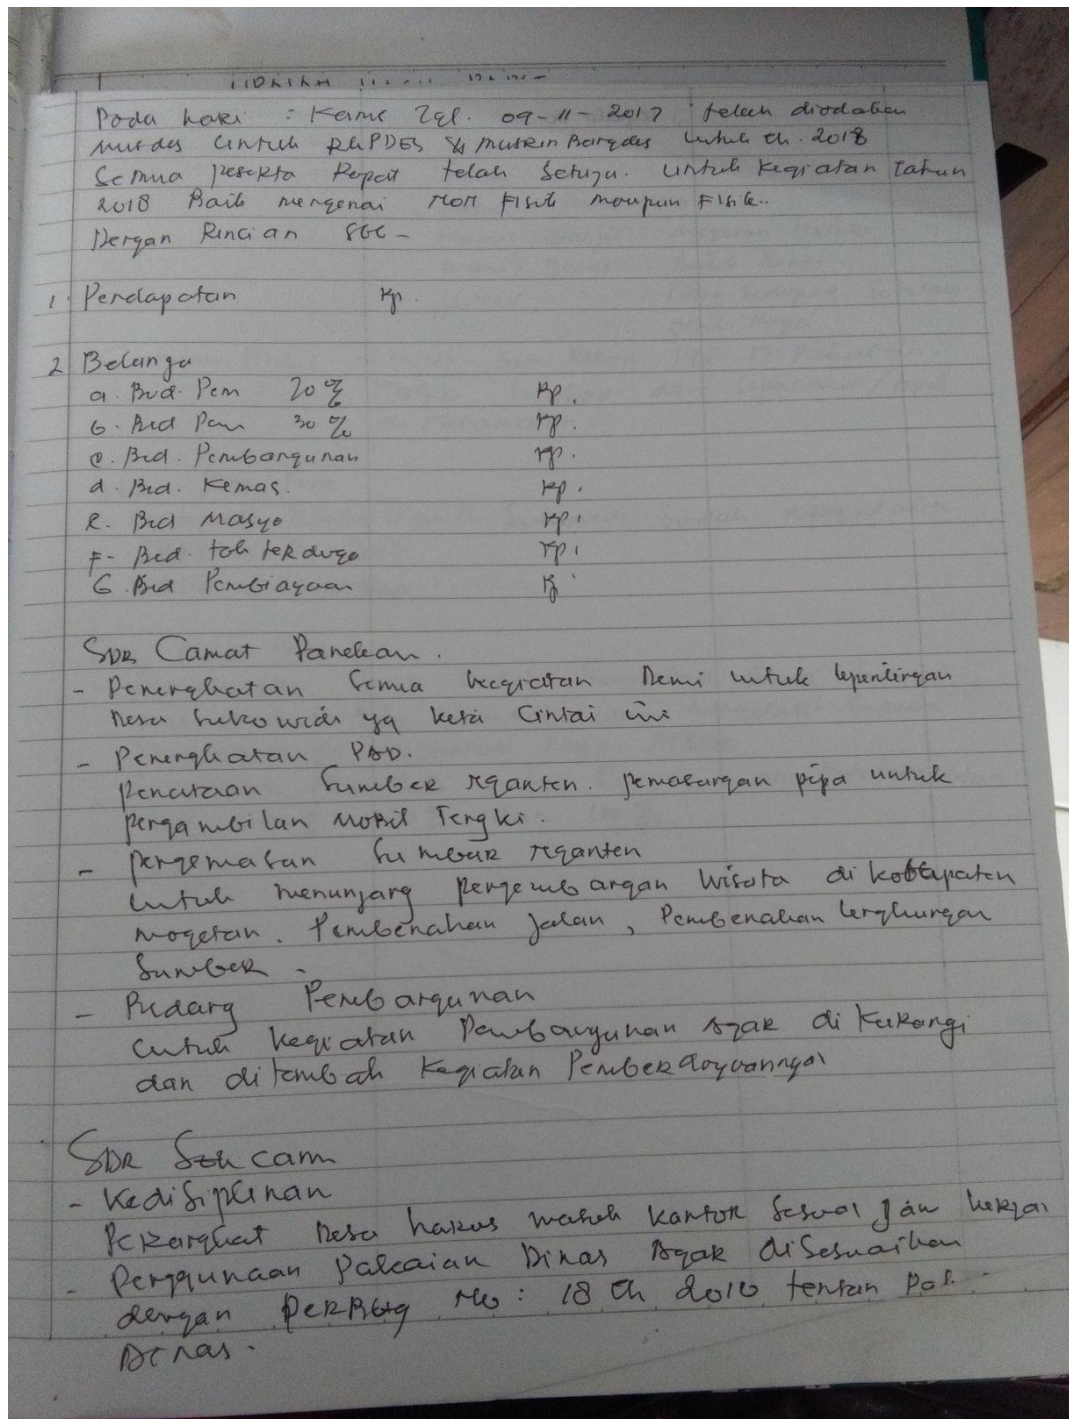 Pada hari : Kamis Tgl. 09-11-2017 telah diadakan
Musdes untuk RKPDES & Musrenbangdes untuk th. 2018
Semua peserta Rapat telah setuju. untuk kegiatan tahun
2018 Baik mengenai Non Fisik maupun Fisik..
Dengan Rincian sbb -
1. Pendapatan Rp.
2 Belanja
a. Bid. Pem 70% Rp.
b. Bid Pem 30% Rp.
c. Bid. Pembangunan Rp.
d. Bid. Kemas. Rp.
e. Bid Masya Rp.
F- Bid. tak terduga Rp.
G. Bid Pembiayaan Rp
SDR Camat Panekan.
- Peningkatan semua kegiatan Demi untuk kepentingan
Desa Sukowidi yg kita Cintai ini
- Peningkatan PAD.
penataan Sumber Nganten. pemasangan pipa untuk
pengambilan Mobil Tengki.
- pengemasan Sumber Nganten
untuk menunjang pengembangan Wisata di kabupaten
magetan. Pembenahan Jalan, Pembenahan lengkungan
Sumber.
- Bidang Pembangunan
untuk kegiatan Pembangunan agar di Kurangi
dan ditembah Kegiatan Pemberdayaannya
SDR Sekcam
- Kedisiplinan
Perangkat Desa harus masuk Kantor Sesuai jam kerja
- Penggunaan Pakaian Dinas Agar disesuaikan
dengan PERBUG No: 18 th 2010 tentan Pak.
Dinas.